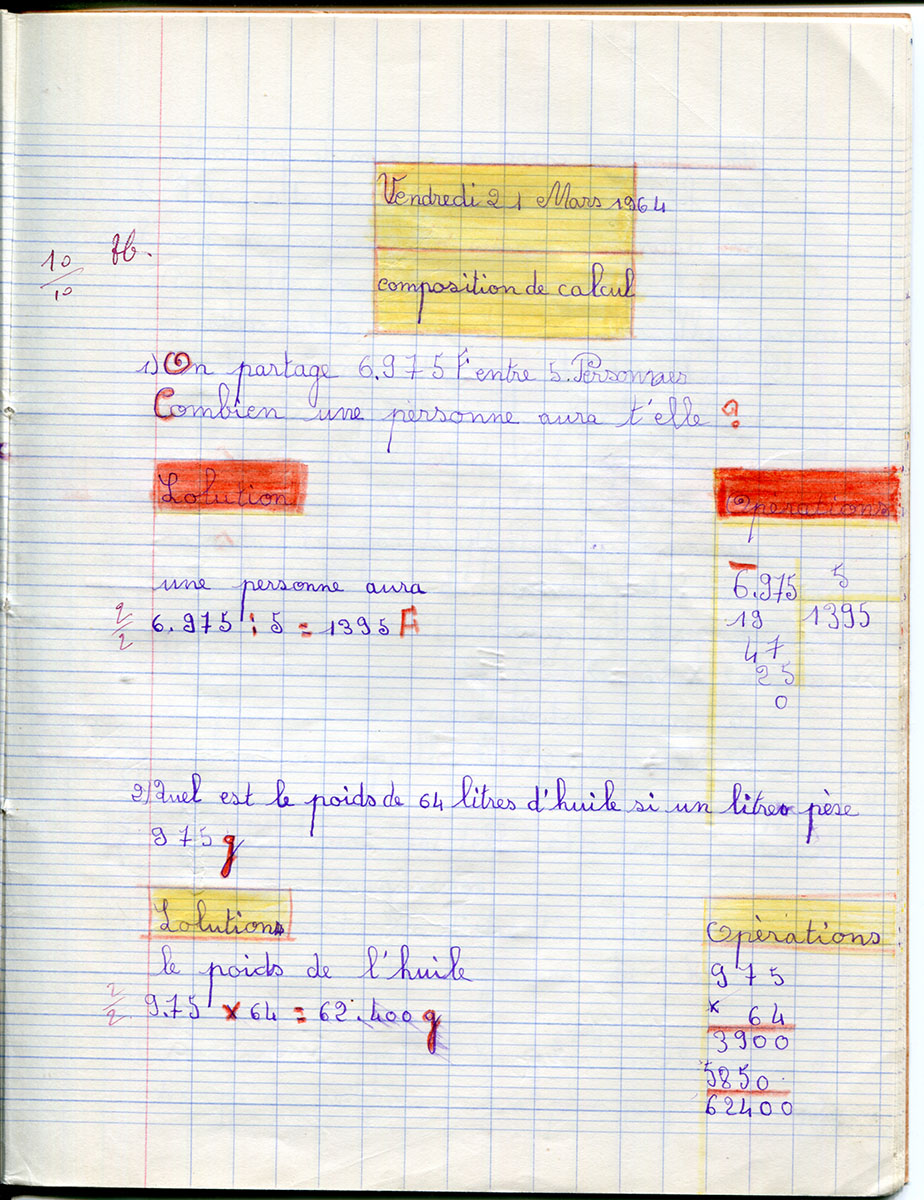 Vendredi 21 Mars 1964
10/10 tb.
composition de calcul
1) On partage 6.975 F entre 5. Personnes
Combien une personne aura t'elle ?
Solution
Opérations
une personne aura
2/2 6.975 : 5 = 1395 F
6.975 5
19 1395
47
25
0
2) Quel est le poids de 64 litres d'huile si un litre pèse
975 g
Solution
Opèrations
le poids de l'huile
2/2 9.75 x 64 = 62.400 g
975
x 64
3900
5850.
62400